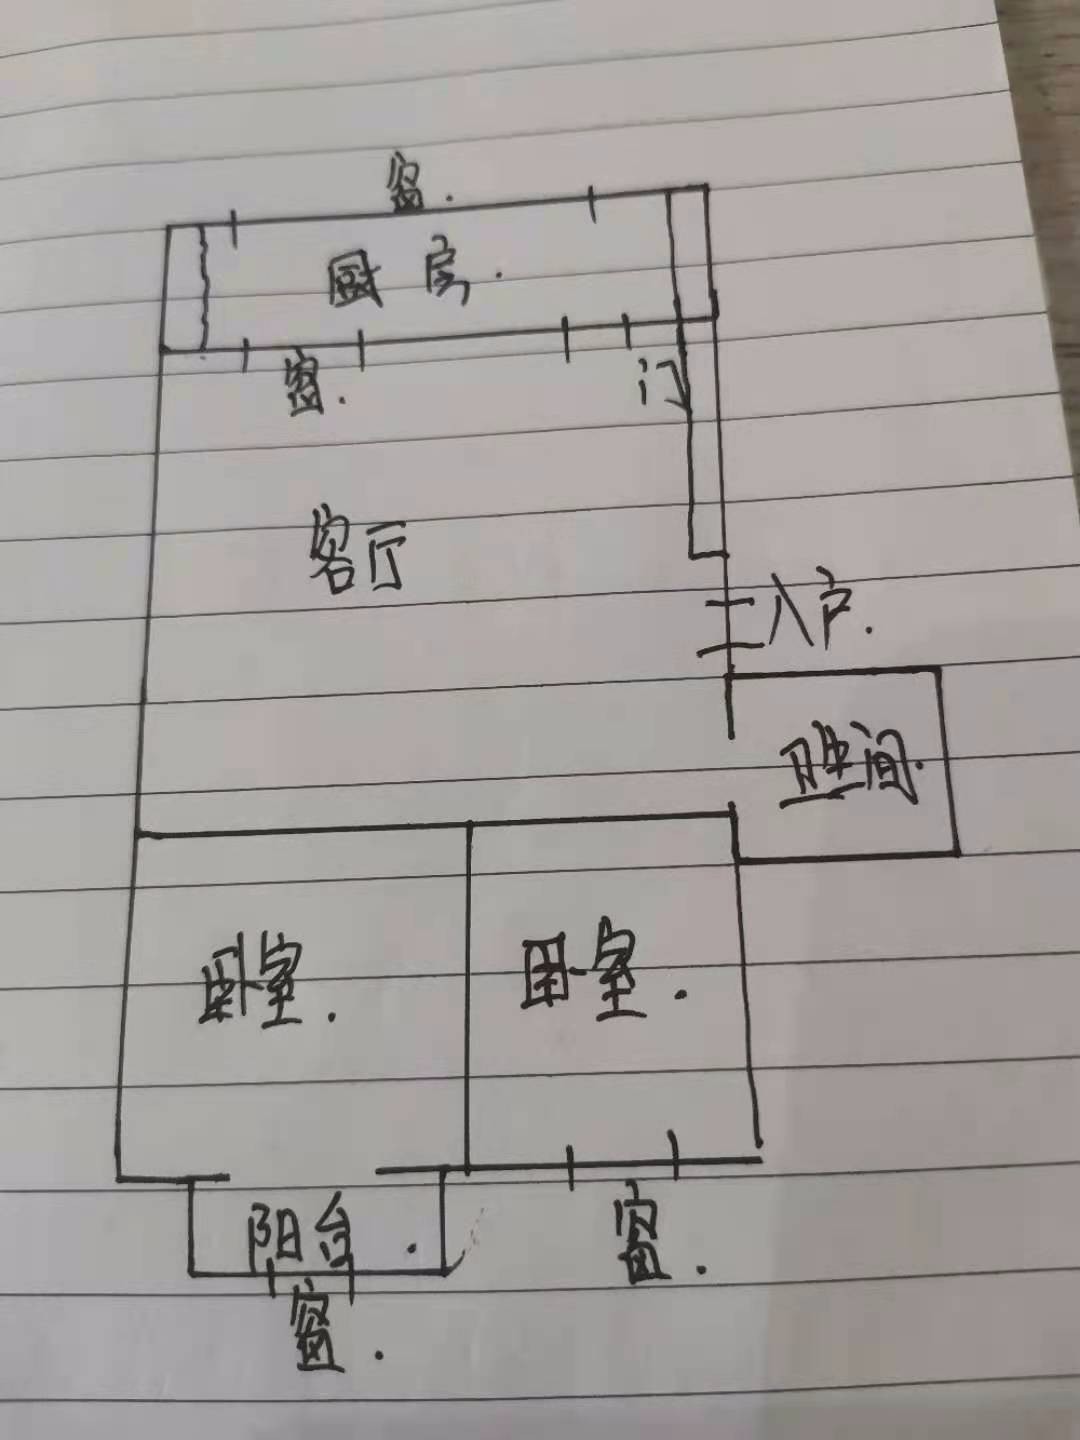 窗.
厨房.
窗.
门
客厅
入户.
卫生间.
卧室.
卧室.
阳台.
窗.
窗.